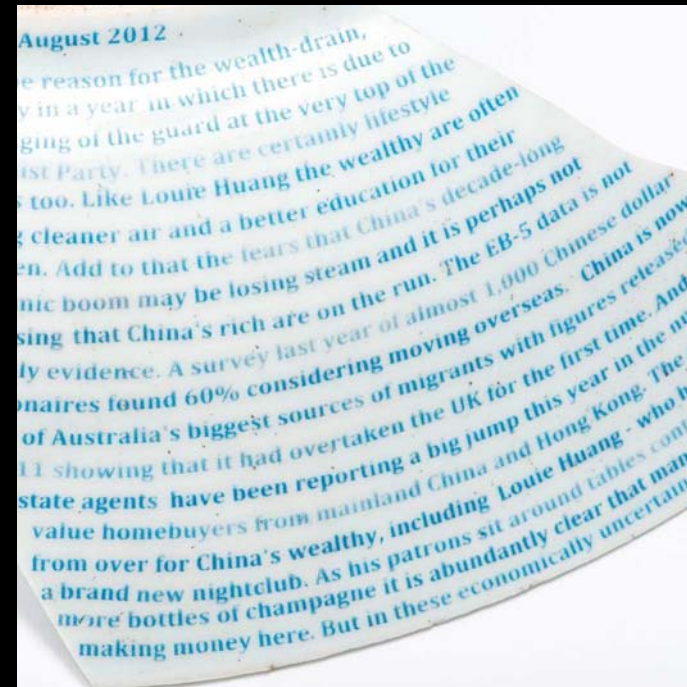 August 2012
e reason for the wealth-drain,
y in a year in which there is due to
ging of the guard at the very top of the
ist Party. There are certainly lifestyle
s too. Like Louie Huang the wealthy are often
g cleaner air and a better education for their
en. Add to that the fears that China's decade-long
nic boom may be losing steam and it is perhaps not
sing that China's rich are on the run. The EB-5 data is not
ly evidence. A survey last year of almost 1,000 Chinese dollar
onaires found 60% considering moving overseas. China is now
of Australia's biggest sources of migrants with figures released
11 showing that it had overtaken the UK for the first time. And
state agents have been reporting a big jump this year in the nu
value homebuyers from mainland China and Hong Kong. The
from over for China's wealthy, including Louie Huang - who h
a brand new nightclub. As his patrons sit around tables cont
more bottles of champagne it is abundantly clear that man
making money here. But in these economically uncertain